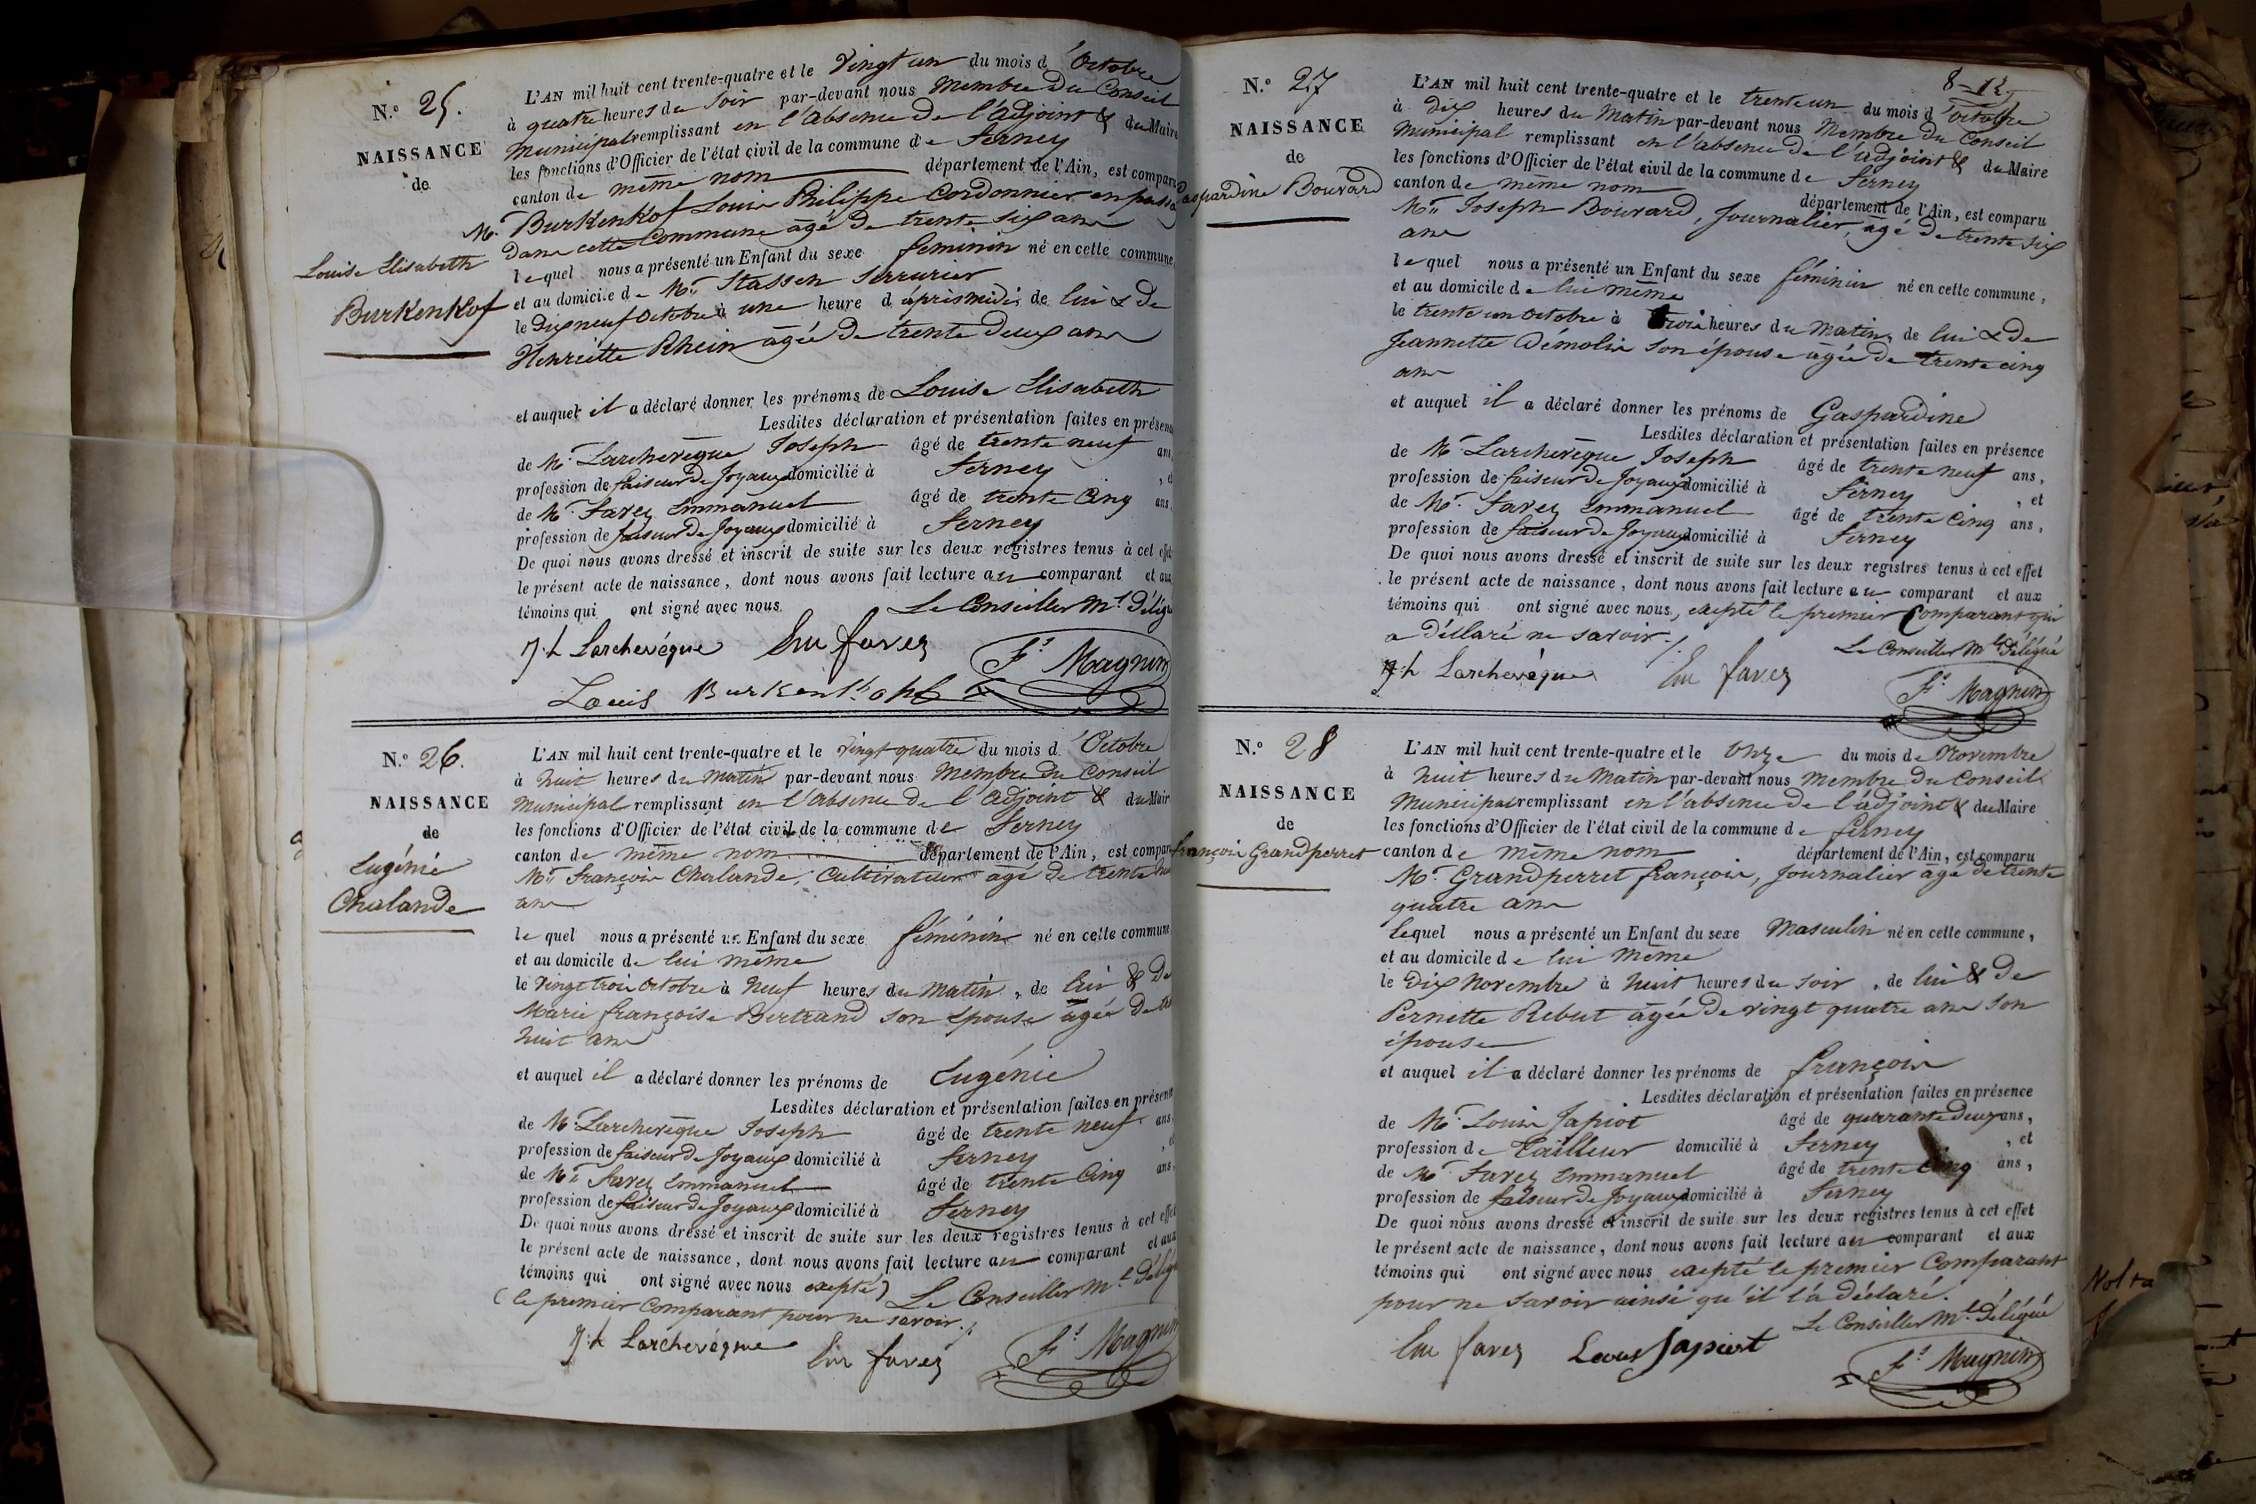 N.º 25.
NAISSANCE
de
Louise Elisabeth
Burkenkof
L'AN mil huit cent trente-quatre et le vingt un du mois d'Octobre
à quatre heures du soir par-devant nous Membre du Conseil
Municipal remplissant en l'absence de l'adjoint & du Maire
les fonctions d'Officier de l'état civil de la commune de Ferney
canton de même nom département de l'Ain, est comparu
Mr. Burkenkof Louis Philippe Cordonnier en passa
dans cette Commune âgé de trente six ans
lequel nous a présenté un Enfant du sexe féminin né en cette commune,
et au domicile de Mr. Stassen Serrurier
le dix neuf Octobre à une heure d'après midi, de lui & de
Henriette Rhein âgée de trente deux ans
et auquel il a déclaré donner les prénoms de Louise Elisabeth
Lesdites déclaration et présentation faites en présence
de Mr. Larchevêque Joseph âgé de trente neuf ans,
profession de faiseur de Joyaux domicilié à Ferney, et
de Mr. Favez Emmanuel âgé de trente Cinq ans,
profession de faiseur de Joyaux domicilié à Ferney
De quoi nous avons dressé et inscrit de suite sur les deux registres tenus à cet effet
le présent acte de naissance, dont nous avons fait lecture au comparant et aux
témoins qui ont signé avec nous. Le Conseiller Ml Délégu
J.h Larchevêque Em favez Fs Magnin
Louis Burkenkhophf
N.º 26.
NAISSANCE
de
Eugénie
Chalande
L'AN mil huit cent trente-quatre et le vingt quatre du mois d'Octobre
à huit heures du matin par-devant nous Membre du Conseil
Municipal remplissant en l'absence de l'adjoint & du Maire
les fonctions d'Officier de l'état civil de la commune de Ferney
canton de même nom département de l'Ain, est comparu
Mr. François Chalande, Cultivateur âgé de trente
ans
lequel nous a présenté un Enfant du sexe féminin né en cette commune
et au domicile de lui même
le vingt trois Octobre à Neuf heures du matin, de lui & de
Marie françoise Bertrand son épouse âgée de
huit ans
et auquel il a déclaré donner les prénoms de Eugénie
Lesdites déclaration et présentation faites en présence
de Mr. Larchevêque Joseph âgé de trente neuf ans,
profession de faiseur de Joyaux domicilié à Ferney, et
de Mr. Favez Emmanuel âgé de trente Cinq ans,
profession de faiseur de Joyaux domicilié à Ferney
De quoi nous avons dressé et inscrit de suite sur les deux registres tenus à cet effet
le présent acte de naissance, dont nous avons fait lecture au comparant et aux
témoins qui ont signé avec nous excepté)
(le premier comparant pour ne savoir. Le Conseiller Ml Délégu
J.h Larchevêque Em favez Fs Magnin
8-12
N.º 27
NAISSANCE
de
Gaspardine Bouvard
L'AN mil huit cent trente-quatre et le trente un du mois d'octobre
à dix heures du Matin par-devant nous Membre du Conseil
Municipal remplissant en l'absence de l'adjoint & du Maire
les fonctions d'Officier de l'état civil de la commune de Ferney
canton de même nom département de l'Ain, est comparu
Mr. Joseph Bouvard, Journalier âgé de trente six
ans
lequel nous a présenté un Enfant du sexe féminin né en cette commune,
et au domicile de lui même
le trente un octobre à trois heures du matin, de lui & de
Jeannette Démolis son épouse âgée de trente cinq
ans
et auquel il a déclaré donner les prénoms de Gaspardine
Lesdites déclaration et présentation faites en présence
de Mr. Larchevêque Joseph âgé de trente neuf ans,
profession de faiseur de Joyaux domicilié à Ferney, et
de Mr. Favez Emmanuel âgé de trente Cinq ans,
profession de faiseur de Joyaux domicilié à Ferney
De quoi nous avons dressé et inscrit de suite sur les deux registres tenus à cet effet
le présent acte de naissance, dont nous avons fait lecture au comparant et aux
témoins qui ont signé avec nous, excepté le premier Comparant qui
a déclaré ne savoir. Le Conseiller Ml Délégué
J.h Larchevêque Em favez Fs Magnin
N.º 28
NAISSANCE
de
françois Grandperret
L'AN mil huit cent trente-quatre et le Onze du mois de Novembre
à huit heures du Matin par-devant nous Membre du Conseil
Municipal remplissant en l'absence de l'adjoint & du Maire
les fonctions d'Officier de l'état civil de la commune de ferney
canton de même nom département de l'Ain, est comparu
Mr. Grandperret françois, Journalier âgé de trente
quatre ans
lequel nous a présenté un Enfant du sexe Masculin né en cette commune,
et au domicile de lui même
le dix Novembre à huit heures du soir, de lui & de
Pernette Rebut âgée de vingt quatre ans son
épouse
et auquel il a déclaré donner les prénoms de françois
Lesdites déclaration et présentation faites en présence
de Mr. Louis Japiot âgé de quarante deux ans,
profession de Tailleur domicilié à Ferney, et
de Mr. Favez Emmanuel âgé de trente cinq ans,
profession de faiseur de Joyaux domicilié à Ferney
De quoi nous avons dressé et inscrit de suite sur les deux registres tenus à cet effet
le présent acte de naissance, dont nous avons fait lecture au comparant et aux
témoins qui ont signé avec nous excepté le premier Comparant
pour ne savoir ainsi qu'il l'a déclaré.
Le Conseiller Ml Délégué
Em favez Louis Japiot Fs Magnin